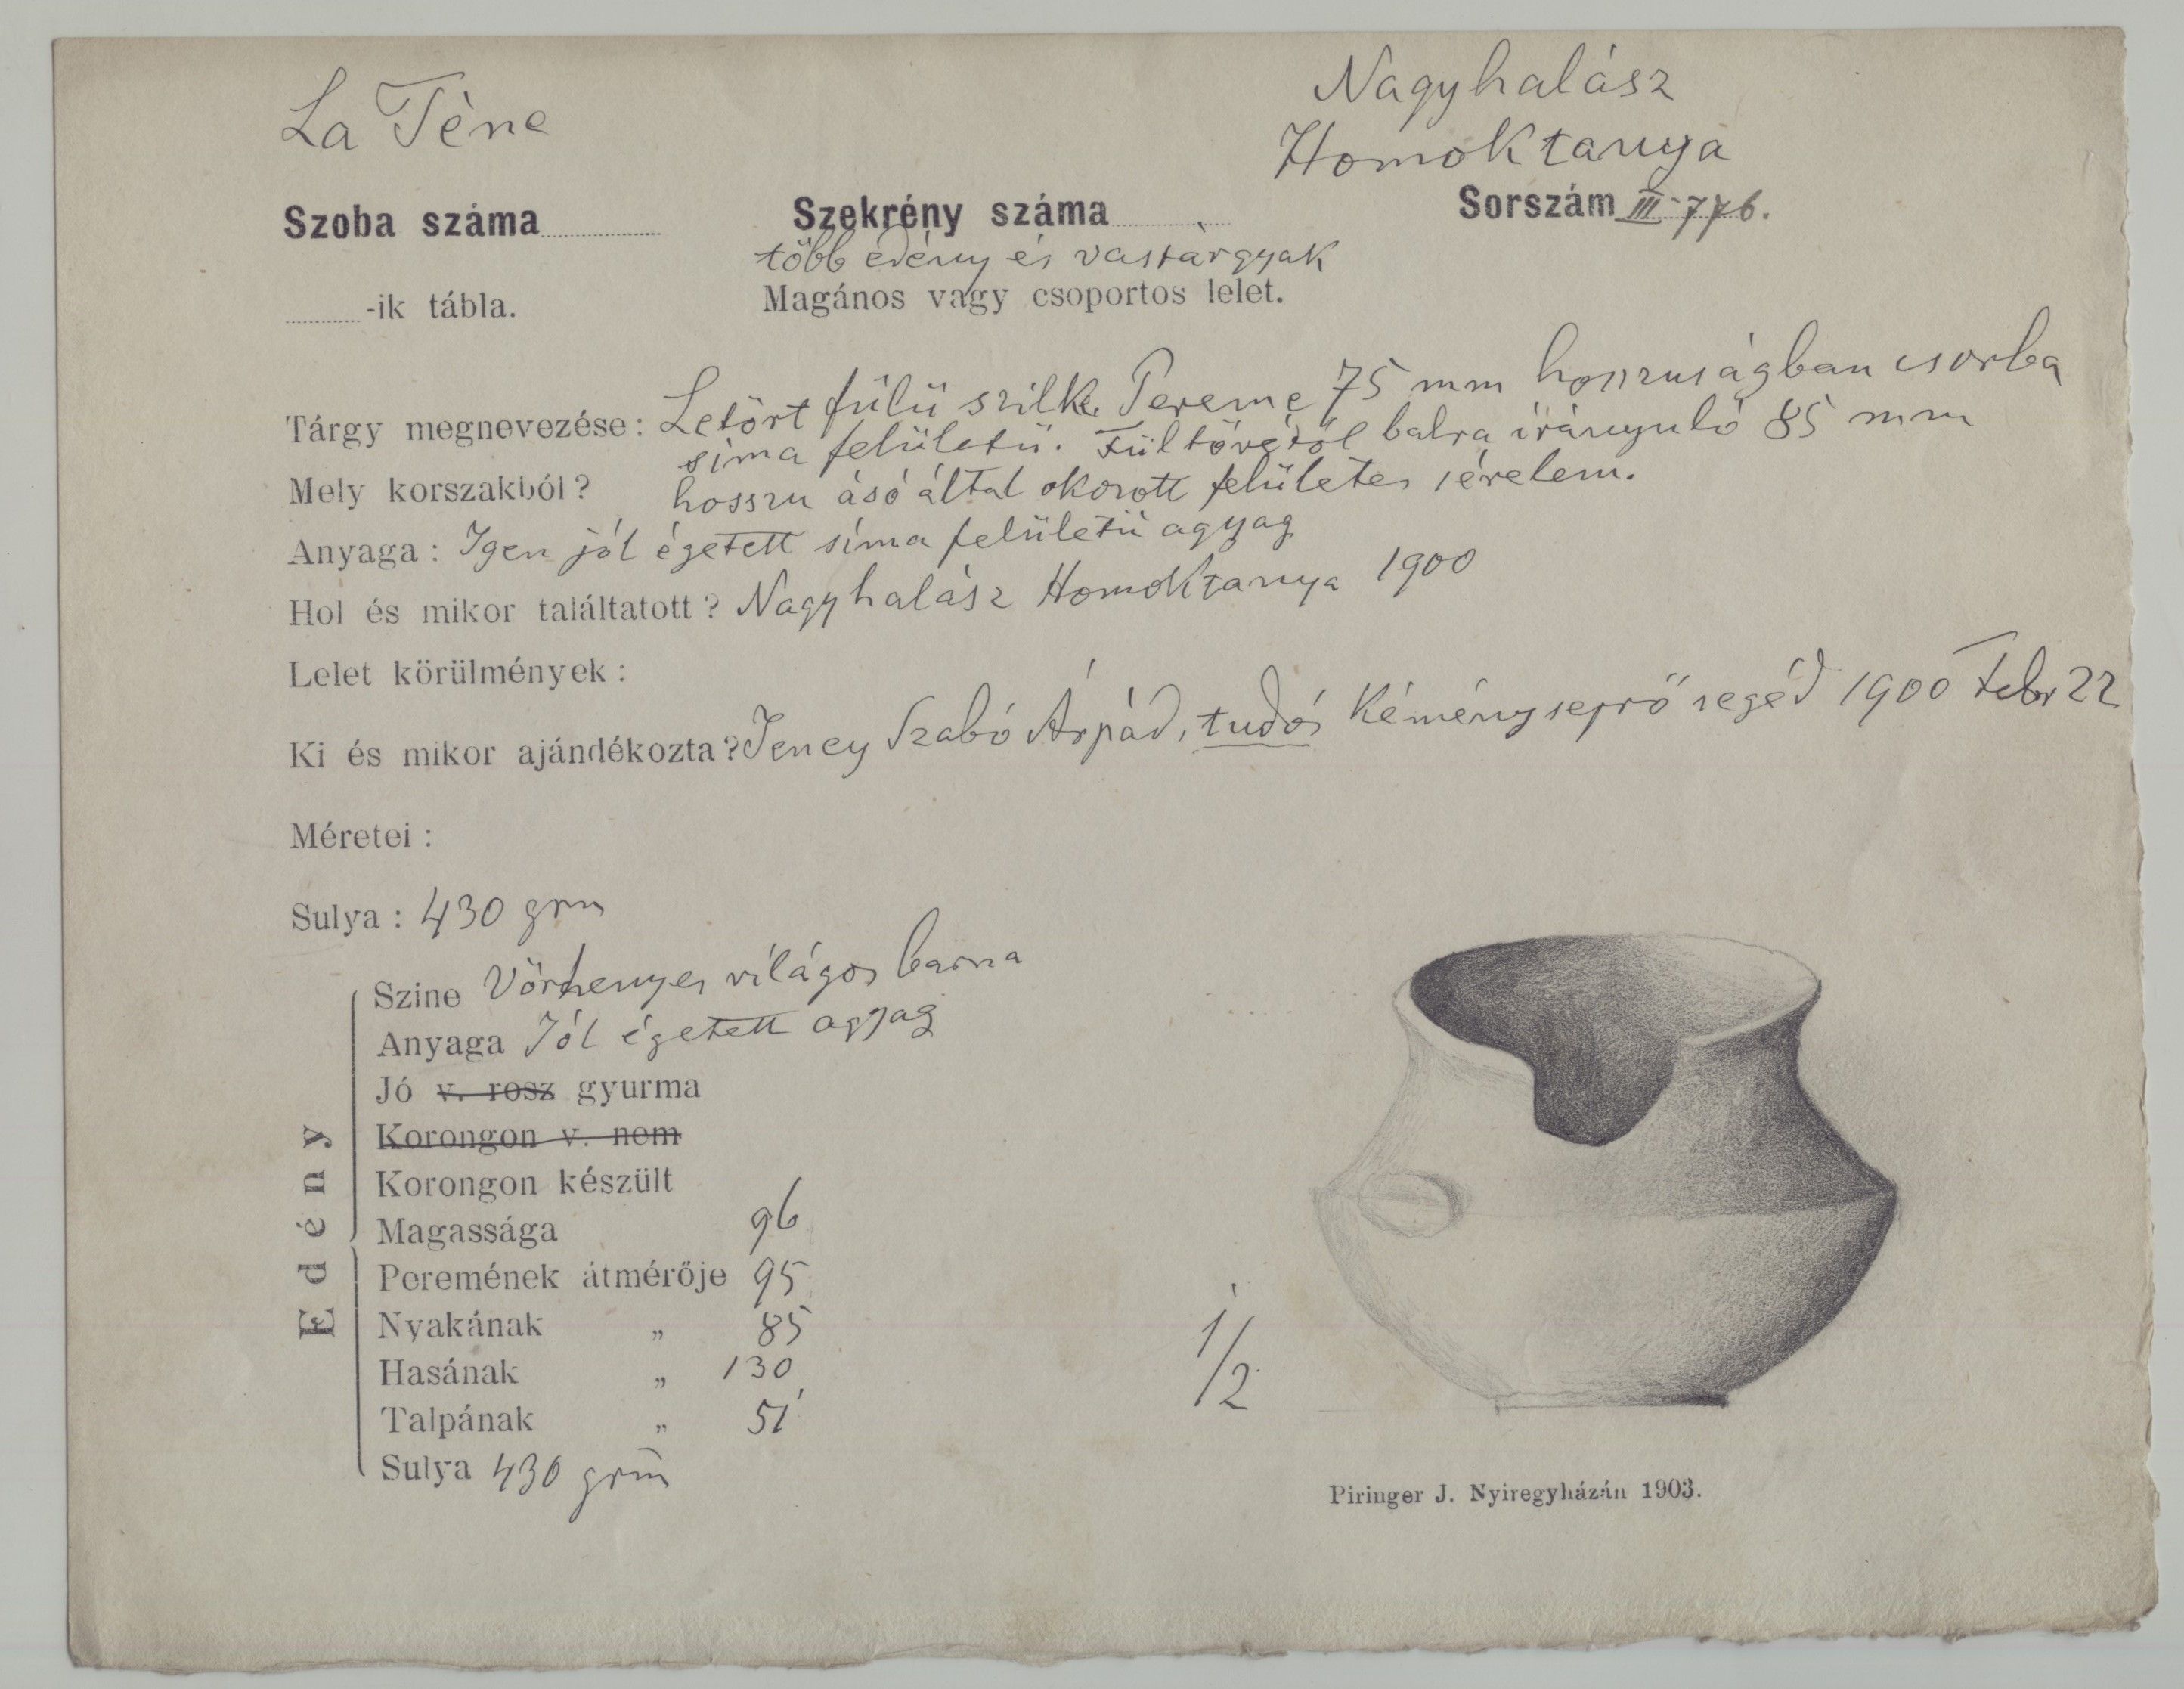 La Tène
Nagyhalász
Homoktanya
Szoba száma
Szekrény száma
Sorszám III-776.
több edény és vastárgyak
-ik tábla.
Magános vagy csoportos lelet.
Tárgy megnevezése: Letört fülü szilke. Pereme 75 mm hosszuságban csorba
sima felületü. Fültövétől balra irányuló 85 mm
Mely korszakból? hosszu ásó által okozott felületes sérelem.
Anyaga: Igen jól égetett síma felületü agyag
Hol és mikor találtatott? Nagyhalász Homoktanya 1900
Lelet körülmények:
Ki és mikor ajándékozta? Jeney Szabó Árpád, tudós Kéményseprő segéd 1900 Febr 22
Méretei:
Sulya: 430 grm
Edény
Szine Vörhenyes világos barna
Anyaga Jól égetett agyag
Jó v. rosz gyurma
Korongon v. nem
Korongon készült
Magassága 96
Peremének átmérője 95
Nyakának „ 85
Hasának „ 130
Talpának „ 51
Sulya 430 grm
1/2
Piringer J. Nyiregyházán 1903.